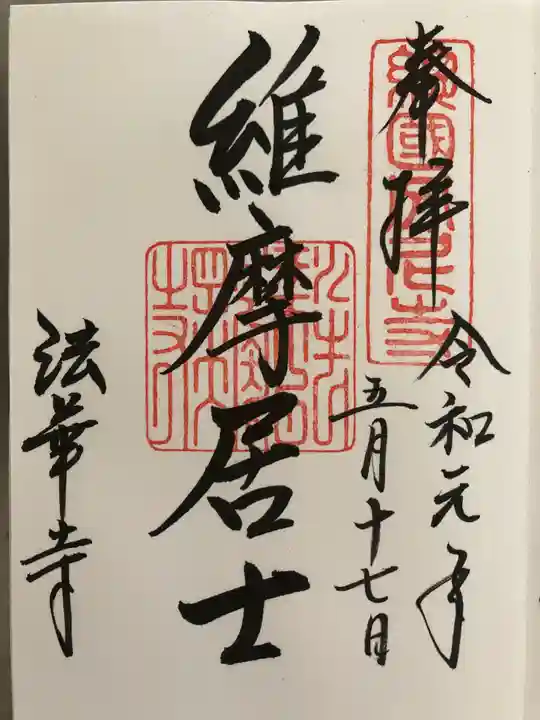 奉拝
令和元年
五月十七日
維摩居士
法華寺